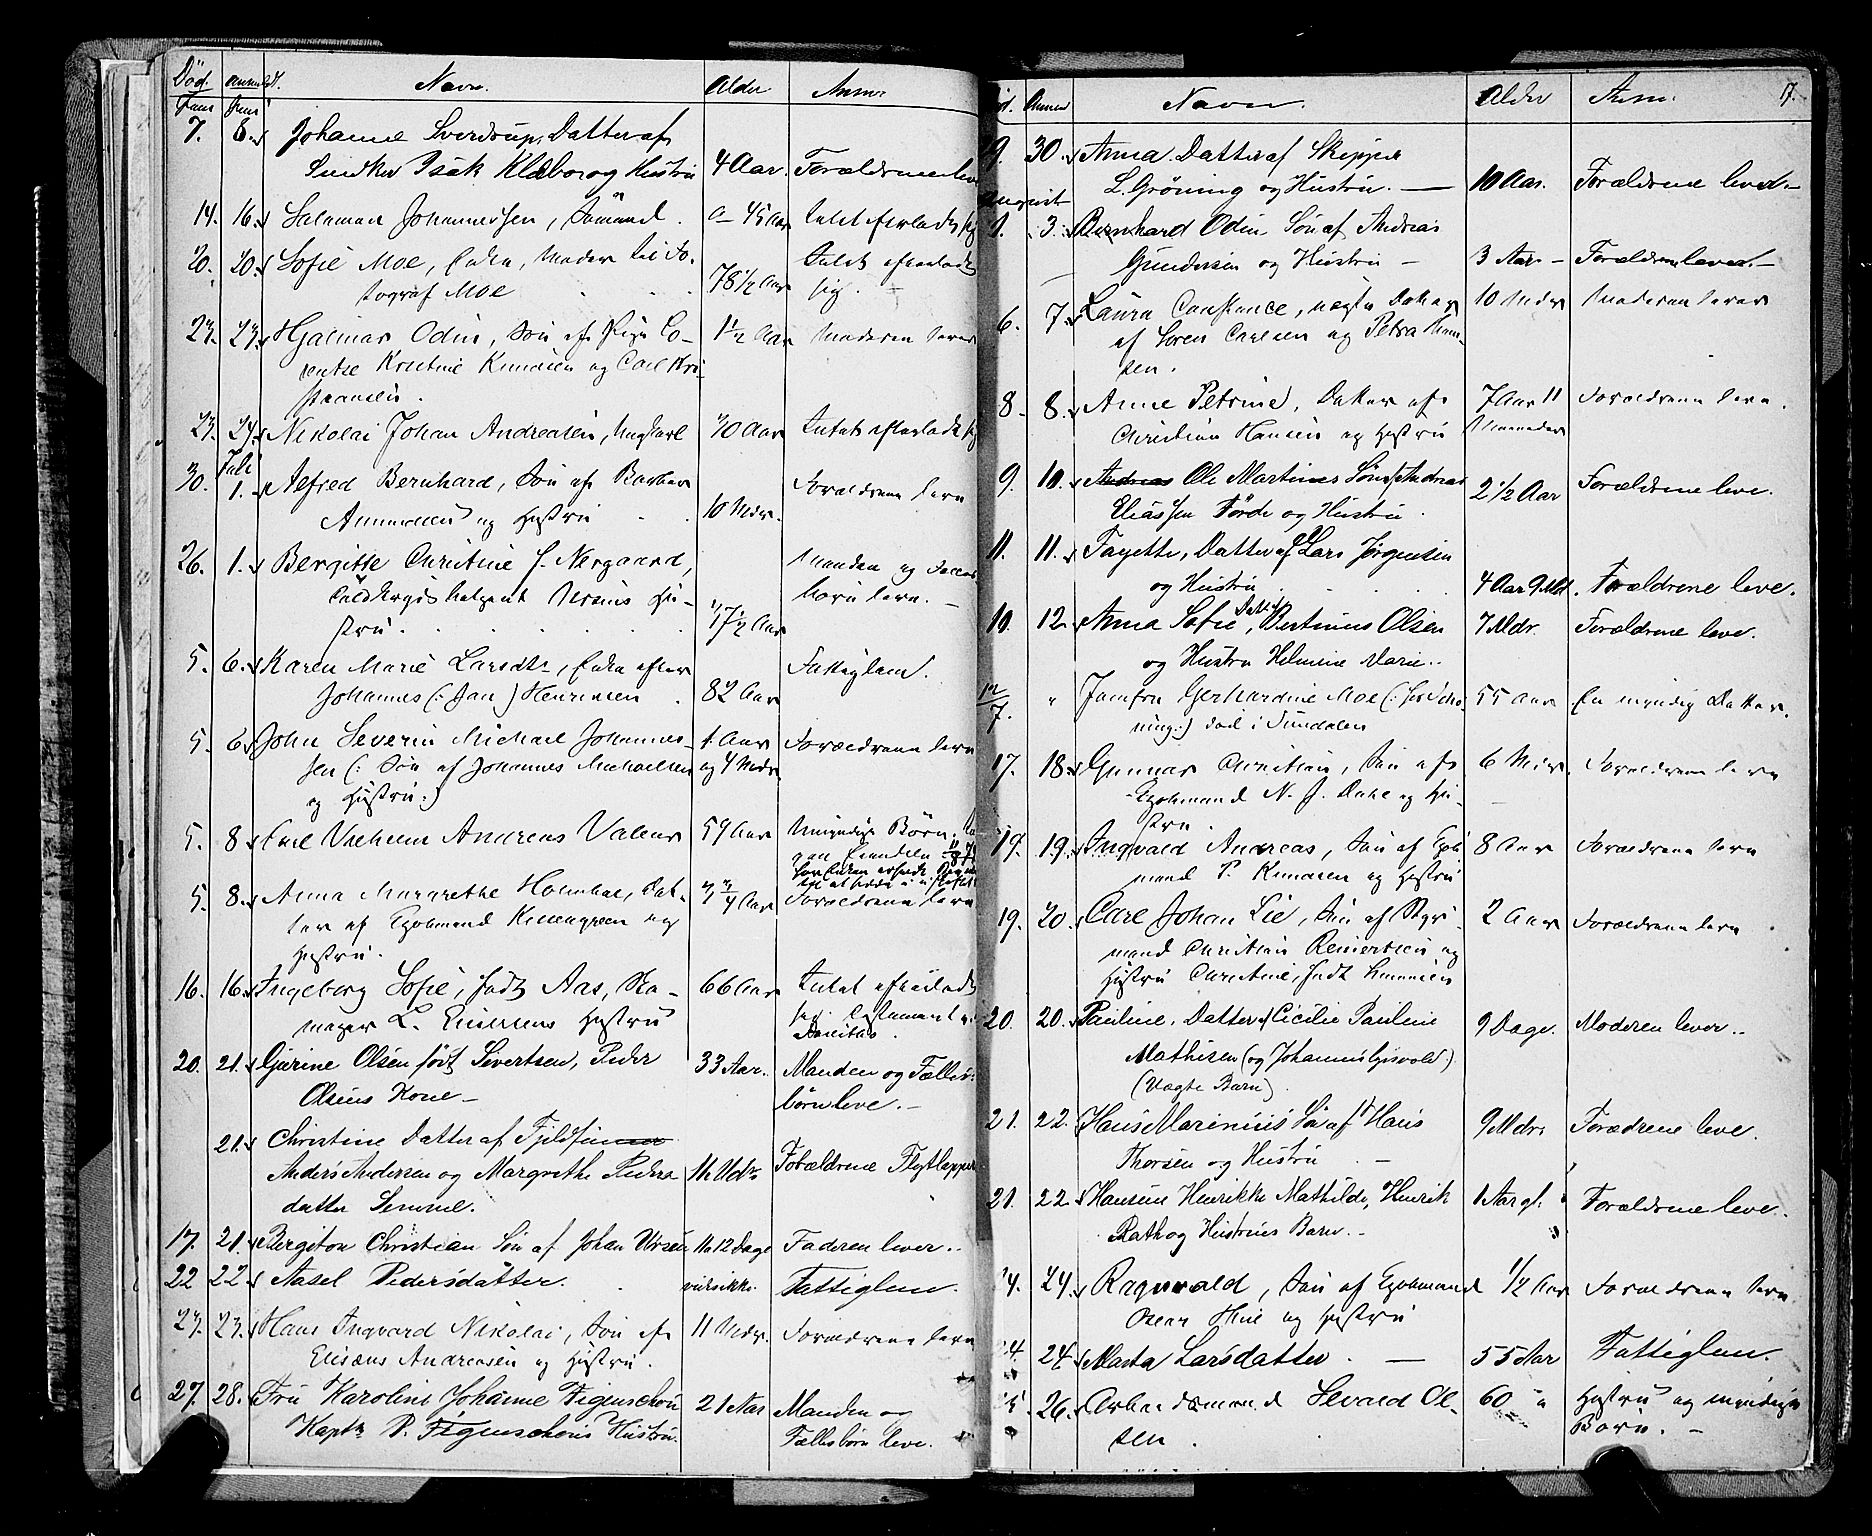 Død. Anmeldt. Navn. Alder Anm:
7. 8. Johanne Sverdrup, Datter af
Snedker Isak Klæbo og Hustru 4 Aar. Forældrene leve
14. 16. Salamon Johannessen, Sømand. 45 Aar Intet efterladt sig
20. 20. Sofie Moe, Enke, Moder til Fo- Intet efterladt
tograf Moe 78 1/2 Aar sig.
23. 23. Hjalmar Odin, Søn af Pige Lo- 1 1/2 Aar Moderen lever
rentse Kristine Knudsen og Carl Kri-
stiansen.
23. 24. Nikolai Johan Andreasen, Ungkarl 70 Aar Intet efterladt sig
Juli
30. 1. Alfred Bernhard, Søn af Barber Forældrene leve
og Hustru 10 Mdr.
26. 1. Bergitte Christine f. Nergaard, Manden og Fælles-
Hu- børn leve.
stru. 37 1/2 Aar
5. 6. Karen Marie Larsdtr, Enke efter Fattiglem.
Johannes (: Jan) Henriksen 82 Aar
5. 6. John Severin Michael Johannes- 1 Aar Forældrene leve
sen (: Søn af Johannes Michaelsen og 4 Mdr.
og Hustru:)
5. 8. Carl Vilhelm Andreas Valeur 59 Aar Umyndige Børn.
5. 8. Anna Margrethe Holmboe, Dat- 3 3/4 Aar Forældrene leve
ter af Kjøbmand Killengreen og
Hustru.
16. 16. Ingeborg Sofie, født Aas, Ma- 66 Aar Intet efterladt
mager L. Hustru sig. Testament
20. 21. Gjurine Olsen født Sivertsen, Peder 33 Aar. Manden og Fælles-
Olsens Kone - børn leve. -
21. Christine Datter af Fjeldfinner
Anders Andersen og Margrethe Peders 1 1/2 Mdr Forældrene Flytlapper
datter Semmel.
17. 21. Bergiton Christian Søn af Johan Ursin 11 a 12 Dage Faderen lever..
22 22. Aasel Pedersdatter. vides ikke. Fattiglem.
23. 23. Hans Ingvard Nikolai, Søn af 11 Mdr. Forældrene leve
Elisæus Andreasen og Hustru.
27. 28. Fru Karoline Johanne Figenschou 21 Aar Manden og
Kaptn P. Figenschous Hustru. Fællesbørn leve.
Navn. Alder Anm. 17.
29. 30. Anna Datter af Skipper
L. Grøning og Hustru. 10 Aar. Forældrene lever.
August
1. 3. Bernhard Odin Søn af Andreas
Gundersen og Hustru - 3 Aar - Forældrene lever. -
6. 7. Laura Constance, uægte Datter 10 Mdr Moderen lever
af Søren Carlsen og Petra Han-
sen.
8. 8. Anne Petrine, Datter af 7 Aar 11 Forældrene leve.
Christian Hansen og Hustru Maaneder
9. 10. Andreas Ole Martines Søn af Andreas 2 1/2 Aar Forældrene leve.
Eliassen Förde og Hustru.
11. 11. Fayette, Datter af Lars Jørgensen
og Hustru 4 Aar 9 Mdr. Forældrene leve.
10. 12. Anna Sofie, Datter Bertinius Olsen 7 Mdr. Forældrene leve.
og Hustru Helmine Marie..
12/7. " Jomfru Gerhardine Moe (: hos Schø- 55 Aar En myndig Datter.
ning:) død i Sundalen
17. 18. Gunnar Christian, Søn af 6 Mdr. Forældrene leve
Kjøbmand N. J. Dahl og Hu-
stru
19. 19. Ingvald Andreas, Søn af Kjøb- 8 Aar Forældrene leve
mand P. Knudsen og Hustru
19. 20. Carl Johan Lie, Søn af Styr- 2 Aar Forældrene leve
mand Christian Reinertsen og
Hustru Christine, født
20. 20. Pauline, Datter af Cicilie Pauline 9 Dage. Moderen lever..
Mathisen (og Johannes Gisvold)
(Uægte Barn).
21. 22. Hans Marinius Søn af Hans 9 Mdr. Forædrene leve.
Thorsen og Hustru
21. 22. Hansine Henrikke Mathilde, Henrik 1 Aar gl. Forældrene leve.
Rath og Hustrues Barn.-
24. 24. Ragnvald, Søn af Kjøbmand 1/2 Aar Forældrene leve
Oscar og Hustru
24. 24. Marta Larsdatter. - 55 Aar Fattiglem.
26. Arbeidsmand Sevald Ol- 60 " Hustru og myndige
sen. Børn. -